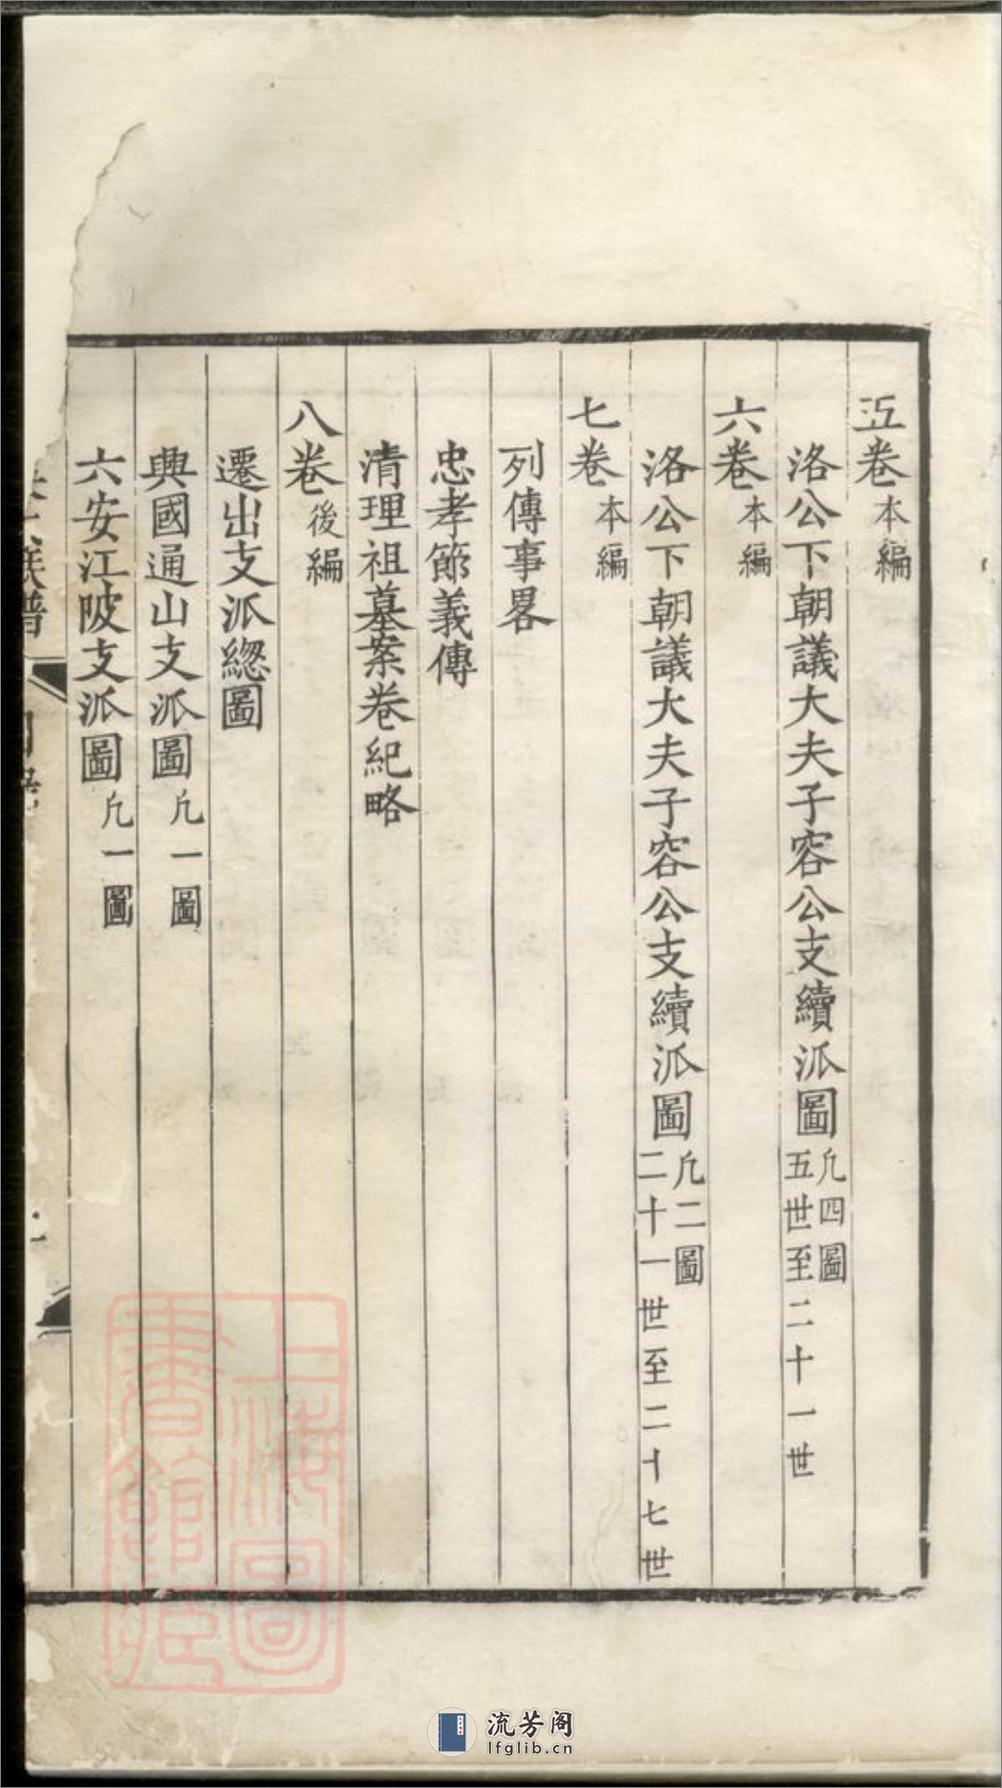 五卷本編
洛公下朝議大夫子容公支續派圖凡四圖五世至二十一世
六卷本編
洛公下朝議大夫子容公支續派圖凡二圖二十一世至二十七世
七卷本編
列傳事畧
忠孝節義傳
清理祖墓案卷紀略
八卷後編
遷出支派總圖
興國通山支派圖凡一圖
六安江陂支派圖凡一圖
族譜
上海圖書館藏
流芳阁
lfglib.cn